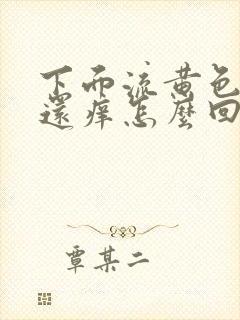 下面流黄色
還痒怎麼回
覃某二